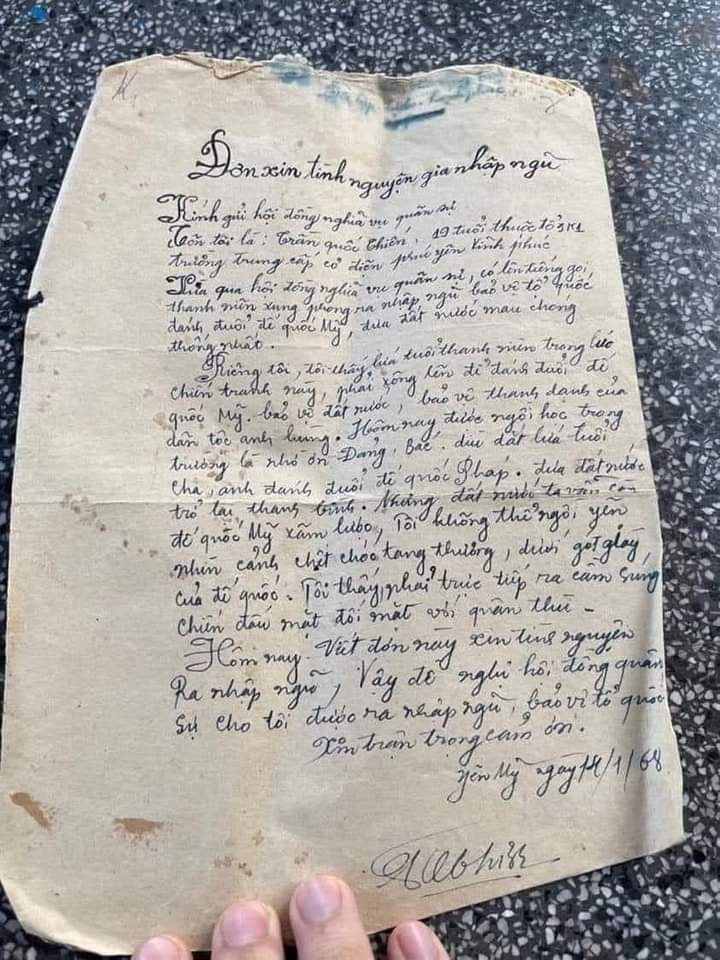 Đơn xin tình nguyện gia nhập ngũ
Kính gửi hội đồng nghĩa vụ quân sự
Tên tôi là: Trần quốc Chiến, 19 tuổi thuộc tổ 3K1
trường trung cấp cơ điện phúc yên Vĩnh phúc
Vừa qua hội đồng nghĩa vụ quân sự, có lên tiếng gọi
thanh niên xung phong ra nhập ngũ bảo vệ tổ Quốc
đánh đuổi đế quốc Mỹ, đưa đất nước mau chóng
thống nhất.
Riêng tôi, tôi thấy lứa tuổi thanh niên trong lúc
chiến tranh này, phải xông lên để đánh đuổi đế
quốc Mỹ. bảo vệ đất nước, bảo vệ thanh danh của
dân tộc anh hùng. Hôm nay được ngồi học trong
trường là nhờ ơn Đảng, Bác. dìu dắt lứa tuổi
cha, anh đánh đuổi đế quốc Pháp. đưa đất nước
trở lại thanh bình. Nhưng đất nước ta vẫn còn
đế quốc Mỹ xâm lược, Tôi không thể ngồi yên
nhìn cảnh chết chóc tang thương, dưới gót giầy
của đế quốc. Tôi thấy, phải trực tiếp ra cầm súng
chiến đấu mặt đối mặt với quân thù -
Hôm nay. Viết đơn này xin tình nguyện
Ra nhập ngũ, Vậy đề nghị hội đồng quân
sự cho tôi được ra nhập ngũ, bảo vệ tổ quốc
Xin trân trọng cảm ơn.
Yên Mỹ ngày 14/1/68